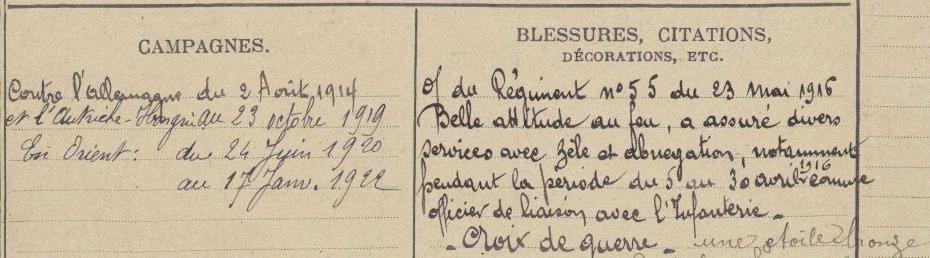 CAMPAGNES.
Contre l'allemagne du 2 Août 1914
et l'Autriche-Hongrie au 23 octobre 1919
En Orient : du 24 Juin 1920
au 17 Janv. 1922
BLESSURES, CITATIONS,
DÉCORATIONS, ETC.
O/ du Régiment n° 55 du 23 mai 1916
Belle attitude au feu, a assuré divers
services avec zèle et abnegation, notamment
pendant la période du 5 au 30 avril 1916 comme
officier de liaison avec l'Infanterie -
- Croix de guerre - une etoile bronze